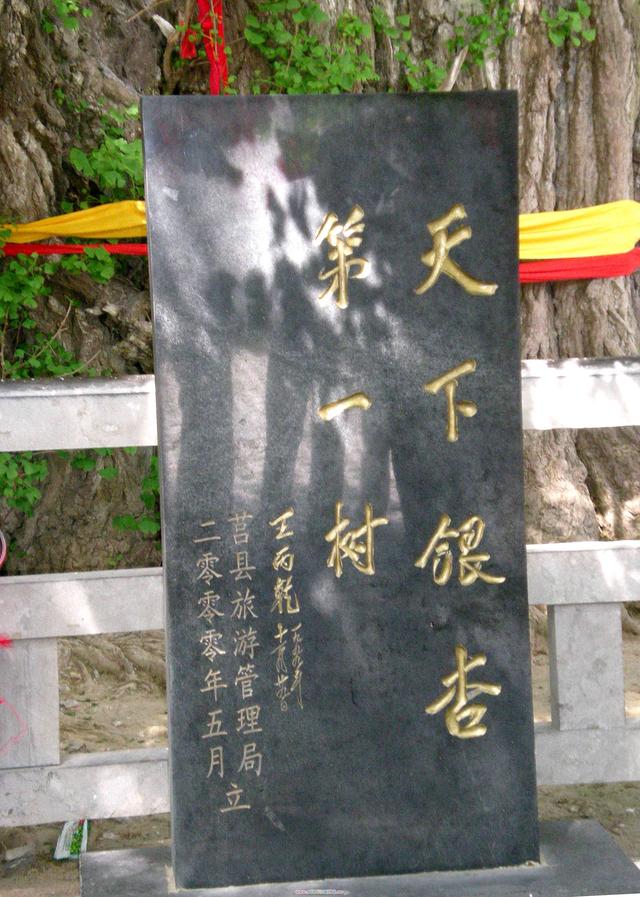 天下银杏
第一树
王丙乾
莒县旅游管理局
二零零零年五月
立